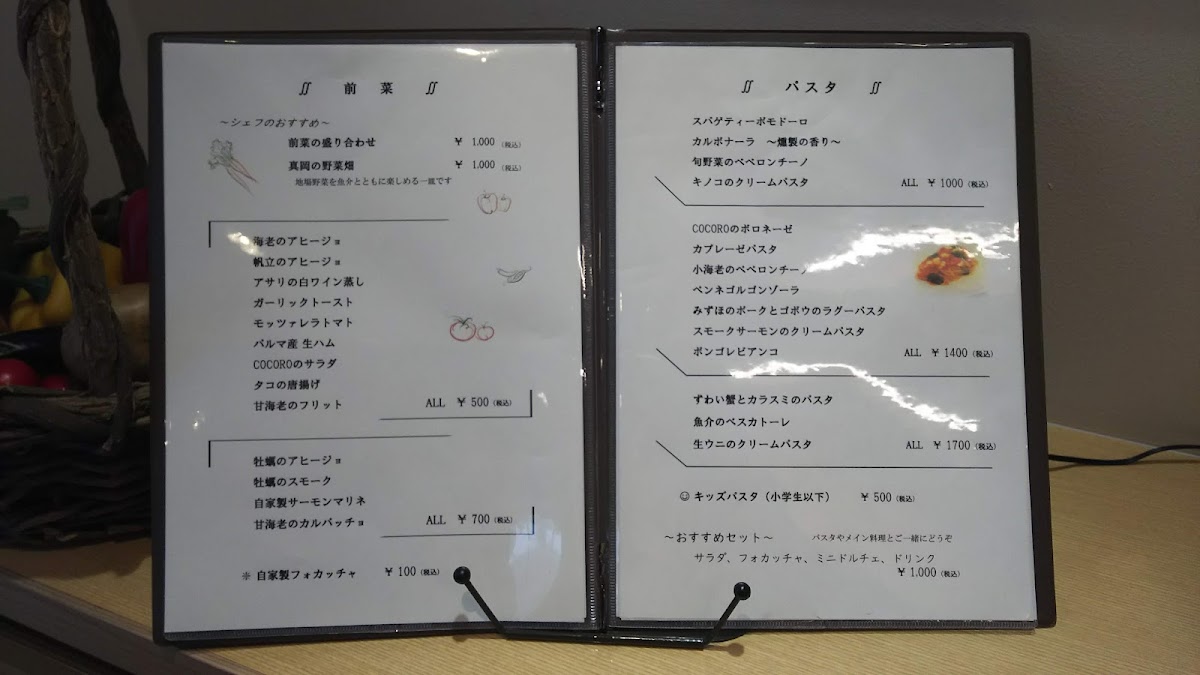 ∬ 前 菜 ∬
～シェフのおすすめ～
前菜の盛り合わせ ￥ 1,000 (税込)
真岡の野菜畑 ￥ 1,000 (税込)
地場野菜を魚介とともに楽しめる一皿です
海老のアヒージョ
帆立のアヒージョ
アサリの白ワイン蒸し
ガーリックトースト
モッツァレラトマト
パルマ産 生ハム
COCOROのサラダ
タコの唐揚げ
甘海老のフリット ALL ￥ 500 (税込)
牡蠣のアヒージョ
牡蠣のスモーク
自家製サーモンマリネ
甘海老のカルパッチョ ALL ￥ 700 (税込)
※ 自家製フォカッチャ ￥ 100 (税込)
∬ パスタ ∬
スパゲティーポモドーロ
カルボナーラ ～燻製の香り～
旬野菜のペペロンチーノ
キノコのクリームパスタ ALL ￥ 1000 (税込)
COCOROのボロネーゼ
カプレーゼパスタ
小海老のペペロンチーノ
ペンネゴルゴンゾーラ
みずほのポークとゴボウのラグーパスタ
スモークサーモンのクリームパスタ
ボンゴレビアンコ ALL ￥ 1400 (税込)
ずわい蟹とカラスミのパスタ
魚介のペスカトーレ
生ウニのクリームパスタ ALL ￥ 1700 (税込)
☺ キッズパスタ（小学生以下） ￥ 500 (税込)
～おすすめセット～ パスタやメイン料理とご一緒にどうぞ
サラダ、フォカッチャ、ミニドルチェ、ドリンク
￥ 1,000 (税込)